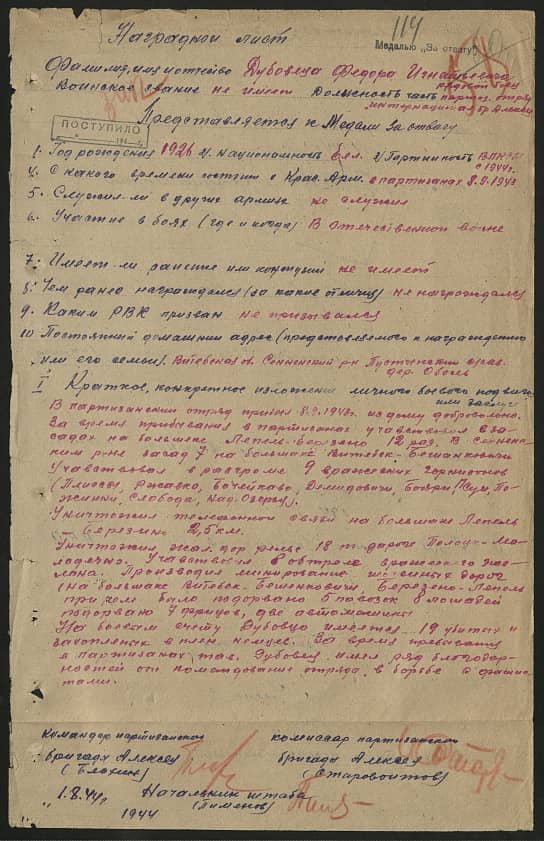 114
Медалью "За отвагу"
Наградной лист
Фамилия, имя и отчество Дубовца Федора Игнатьевича
Воинское звание не имеет Должность часть рядовой боец партиз. отряд
бр Алексея
Представляется к Медали За отвагу
ПОСТУПИЛО
1. Год рождения 1926 2/. Национальность Бел. 3/ Партийность ВЛКСМ
с 1944г.
4. С какого времени состоит в Крас. Арм. в партизанах 8.9.1943
5. Служил-ли в других армиях не служил
6. Участие в боях (где и когда) В отечественной войне
7. Имеет-ли ранение или контузии не имеет
8. Чем ранее награждался (за какие отличия) не награждался
9. Каким РВК призван не призывался
10 Постоянный домашний адрес (представляемого к награждению
или его семьи). Витебская об. Сенненский р-н Пустынский
дер. Оболь
I Краткое, конкретное изложение личного боевого подвига
или заслуг
В партизанский отряд пришел 8.9.1943г. из дому добровольно.
За время пребывания в партизанах участвовал в за-
садах на большаке Лепель-Березино 12 раз. В Сеннен-
ском р-не засад 7 на большаке Витебск-Бешенковичи
Участвовал в разгроме 9 вражеских гарнизонов
(Плиссы, Ржавко, Бочейково, Демидовичи, Бояры, Суи, По-
жинки, Слобода, Над. Озерцы).
Уничтожил телефонной связи на большаке Лепель
– Березино 2,5 км.
Уничтожил жел. дор рельс 18 шт дороги Полоцк-Мо-
лодечно. Участвовал в обстреле вражеского эше-
лона. Производил минирование шоссейных дорог
(на большаке Витебск-Бешенковичи, Березино-Лепель
при чем было подорвано 5 повозок 8 лошадей
подорвано 7 фрицов, две автомашины
На боевом счету Дубовцо имеется 19 убитых и
захопленых в плен немцев. За время пребывания
в партизанах тов. Дубовец имел ряд благодар-
ностей от командования отряда в борьбе с фашис-
тами.
Командир партизанской
комиссар партизанской
бригады Алексея
бригады Алексея
(Блохин)
(Старовойтов)
1.8.44г. Начальник штаба
(Пименов)
1944